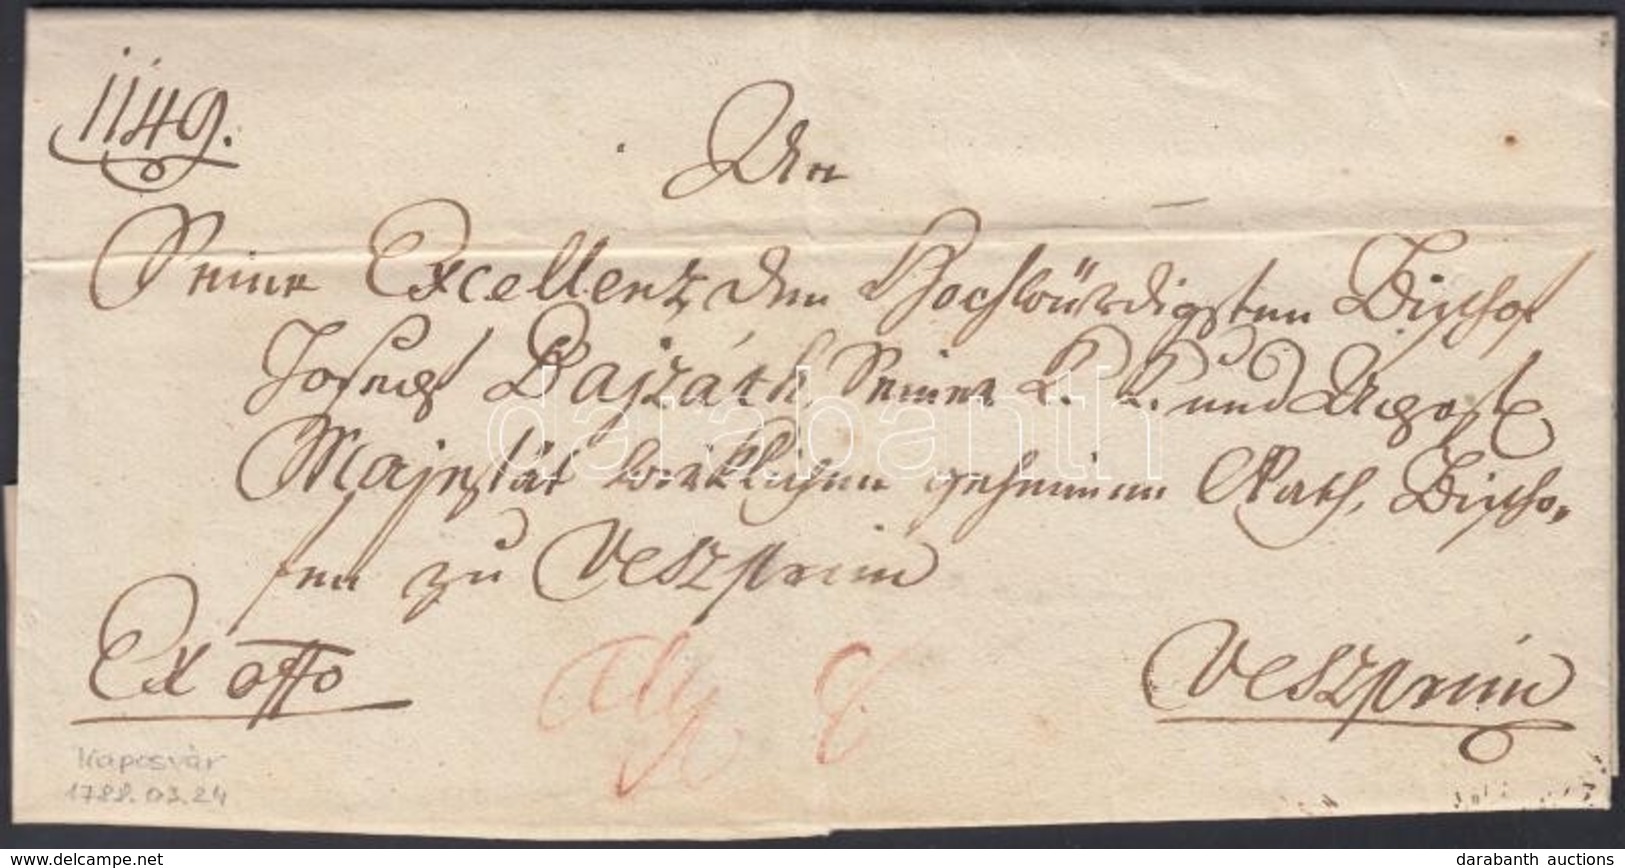 1149.
An
Seine Excellenz den Hochwürdigsten Bischof
Joseph Bajzáth, Seiner K. K. und Apost.
Majestät wirklichen geheimen Rath, Bischo-
fen zu Veszprim
Ex offo
Veszprim
Kaposvár
1788.03.24
darabanth
delcampe.net
darabanth auctions